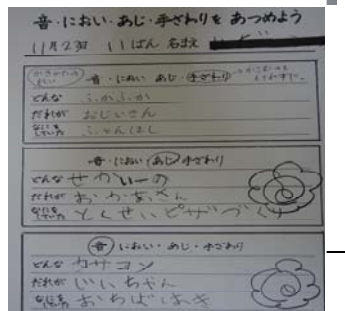 音・におい・あじ・手ざわりを あつめよう
11月2 11ばん 名まえ
音・におい・あじ・手ざわり
どんな ふかふか
だれが おじいさん
なにをしていた
音・におい・あじ・手ざわり
どんな せかいーの
だれが おかあさん
なにをしていた とくせいピザづくり
音・におい・あじ・手ざわり
どんな カサコソ
だれが いいちゃん
なにを おちばはき